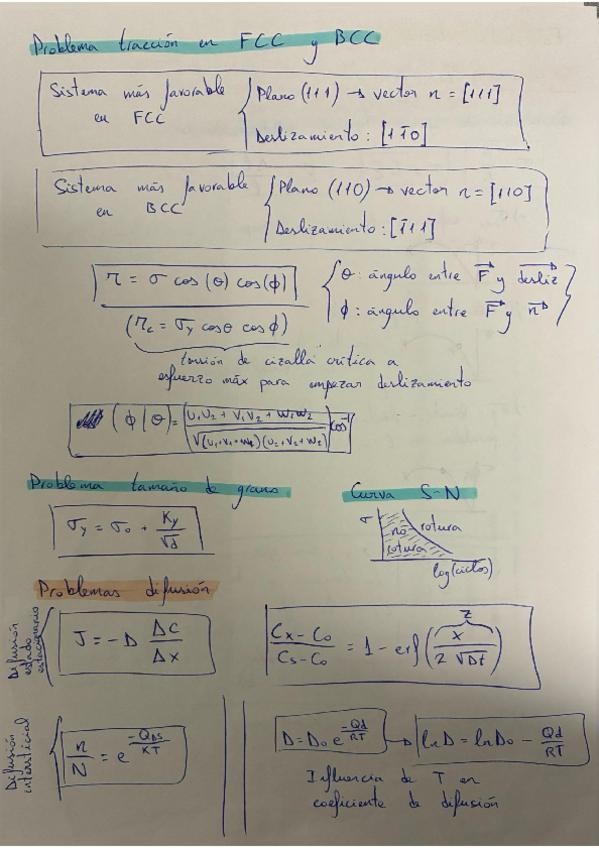 Problema tracción en FCC y BCC
Sistema más favorable en FCC { Plano (111) → vector n = [111]
Deslizamiento: [1 1̄ 0]
Sistema más favorable en BCC { Plano (110) → vector n = [110]
Deslizamiento: [1̄ 1 1]
τ = σ cos(θ) cos(ϕ)
(τc = σy cosθ cosϕ)
{ θ: ángulo entre F⃗ y desliz
ϕ: ángulo entre F⃗ y n⃗ }
tensión de cizalla crítica a
esfuerzo máx para empezar deslizamiento
(ϕ|θ) = (U₁U₂ + V₁V₂ + W₁W₂ / √((U₁+V₁+W₁)(U₂+V₂+W₂))) cos⁻¹
Problema tamaño de grano
σy = σ₀ + Ky/√d
Curva S-N
σ
no rotura
rotura
log(ciclos)
Problemas difusión
Difusión estado estacionario
J = -D ΔC/Δx
Cx - C₀ / Cs - C₀ = 1 - erf(x / 2√Dt)
z
Difusión intersticial
n/N = e^(-QDs/KT)
D = D₀ e^(-Qd/RT) → lnD = lnD₀ - Qd/RT
Influencia de T en
coeficiente de difusión